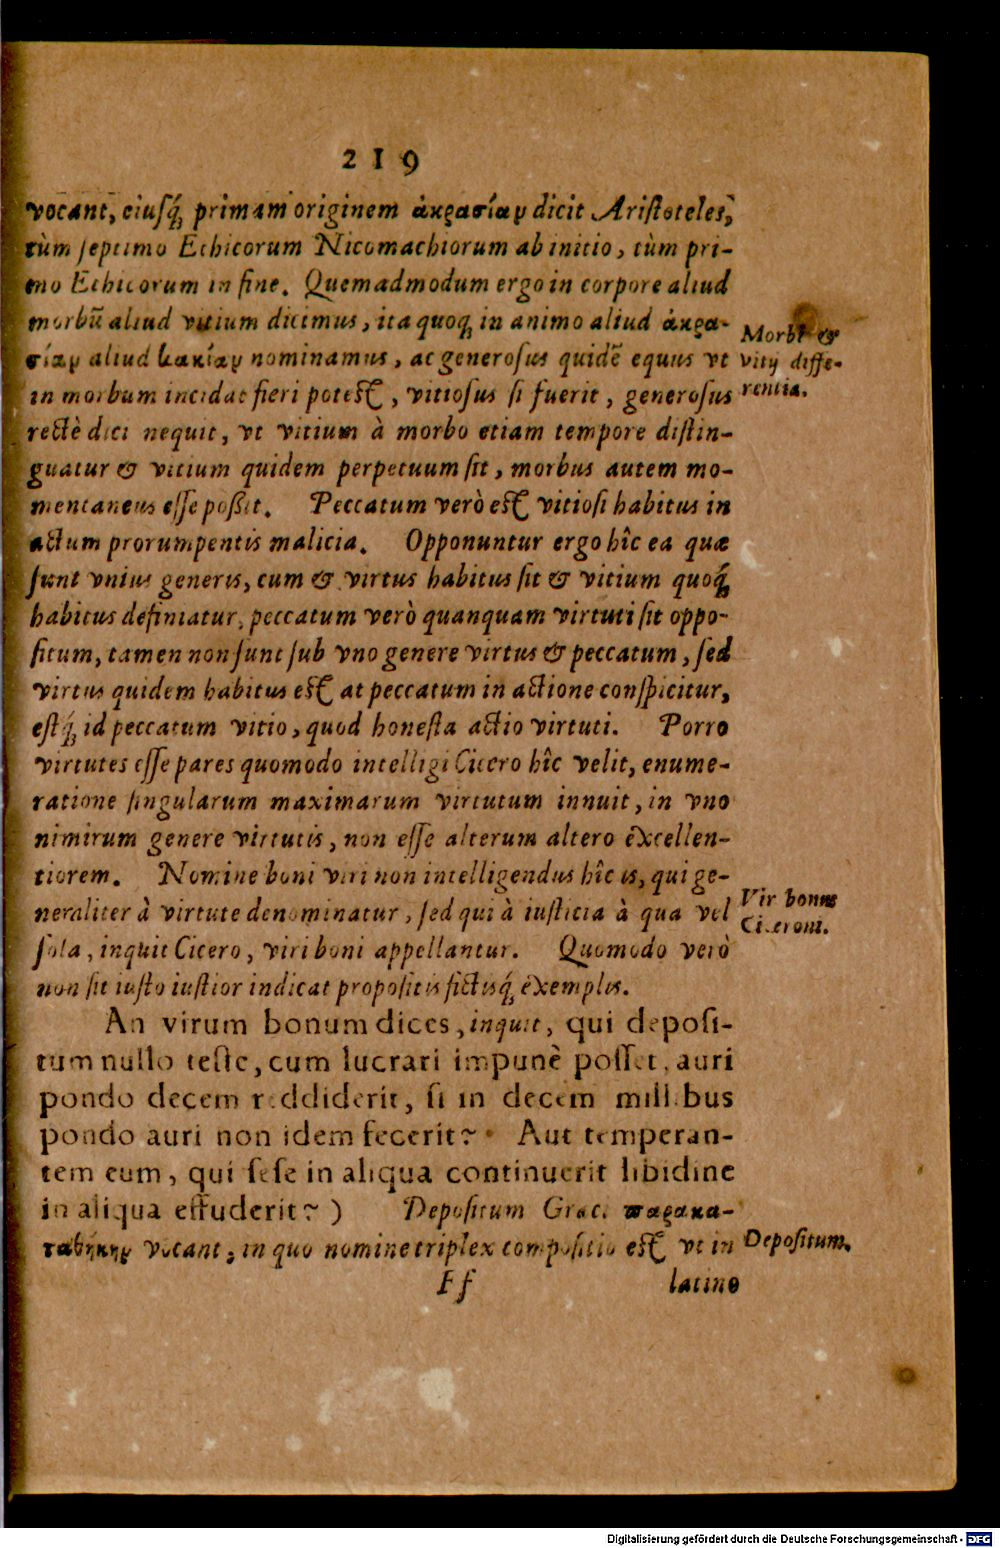 219
vocant, eiusq́; primam originem ἀκρασίαν dicit Aristoteles,
tùm septimo Ethicorum Nicomachiorum ab initio, tùm pri-
mo Ethicorum in fine. Quemadmodum ergo in corpore aliud
morbũ aliud vitium dicimus, ita quoq; in animo aliud ἀκρα-
σίαν aliud κακίαν nominamus, ac generosus quidẽ equus vt
in morbum incidat fieri potest, vitiosus si fuerit, generosus
rectè dici nequit, vt vitium à morbo etiam tempore distin-
guatur & vitium quidem perpetuum sit, morbus autem mo-
mentaneus esse possit. Peccatum verò est vitiosi habitus in
actum prorumpentis malicia. Opponuntur ergo hîc ea quæ
sunt vnius generis, cum & virtus habitus sit & vitium quoq́;
habitus definiatur, peccatum verò quanquam virtuti sit oppo-
situm, tamen non sunt sub vno genere virtus & peccatum, sed
virtus quidem habitus est at peccatum in actione conspicitur,
estq́; id peccatum vitio, quod honesta actio virtuti. Porro
virtutes esse pares quomodo intelligi Cicero hîc velit, enume-
ratione singularum maximarum virtutum innuit, in vno
nimirum genere virtutis, non esse alterum altero excellen-
tiorem. Nomine boni viri non intelligendus hîc is, qui ge-
neraliter à virtute denominatur, sed qui à iusticia à qua vel
sola, inquit Cicero, viri boni appellantur. Quomodo verò
non sit iusto iustior indicat propositis fictisq́; exemplis.
An virum bonum dices, inquit, qui deposi-
tum nullo teste, cum lucrari impunè posset, auri
pondo decem reddiderit, si in decem millibus
pondo auri non idem fecerit? Aut temperan-
tem eum, qui sese in aliqua continuerit libidine
in aliqua effuderit?) Depositum Græc. παρακα-
ταθήκην vocant, in quo nomine triplex compositio est vt in
Ff latino
Morbi &
vitij diffe-
rentia.
Vir bonus
Ciceroni.
Depositum.
Digitalisierung gefördert durch die Deutsche Forschungsgemeinschaft - DFG